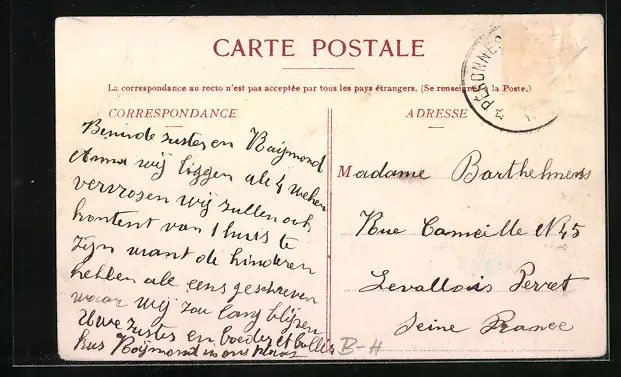 CARTE POSTALE
La correspondance au recto n'est pas acceptée par tous les pays étrangers. (Se renseigner à la Poste.)
CORRESPONDANCE
Beminde zuster en Raijmond
Anna wij liggen ale 4 
vervrozen wij zullen ook
kontent van 1 huis te
zijn want de kinderen
hebben ale eens geschreven
waar wij zoo lang blijven
Uwe zuster en boeder
kus Raijmond in ons
B-H
ADRESSE
PÉRONNES
Madame Barthelmens
Rue Cameille N45
Levallois Perret
Seine France